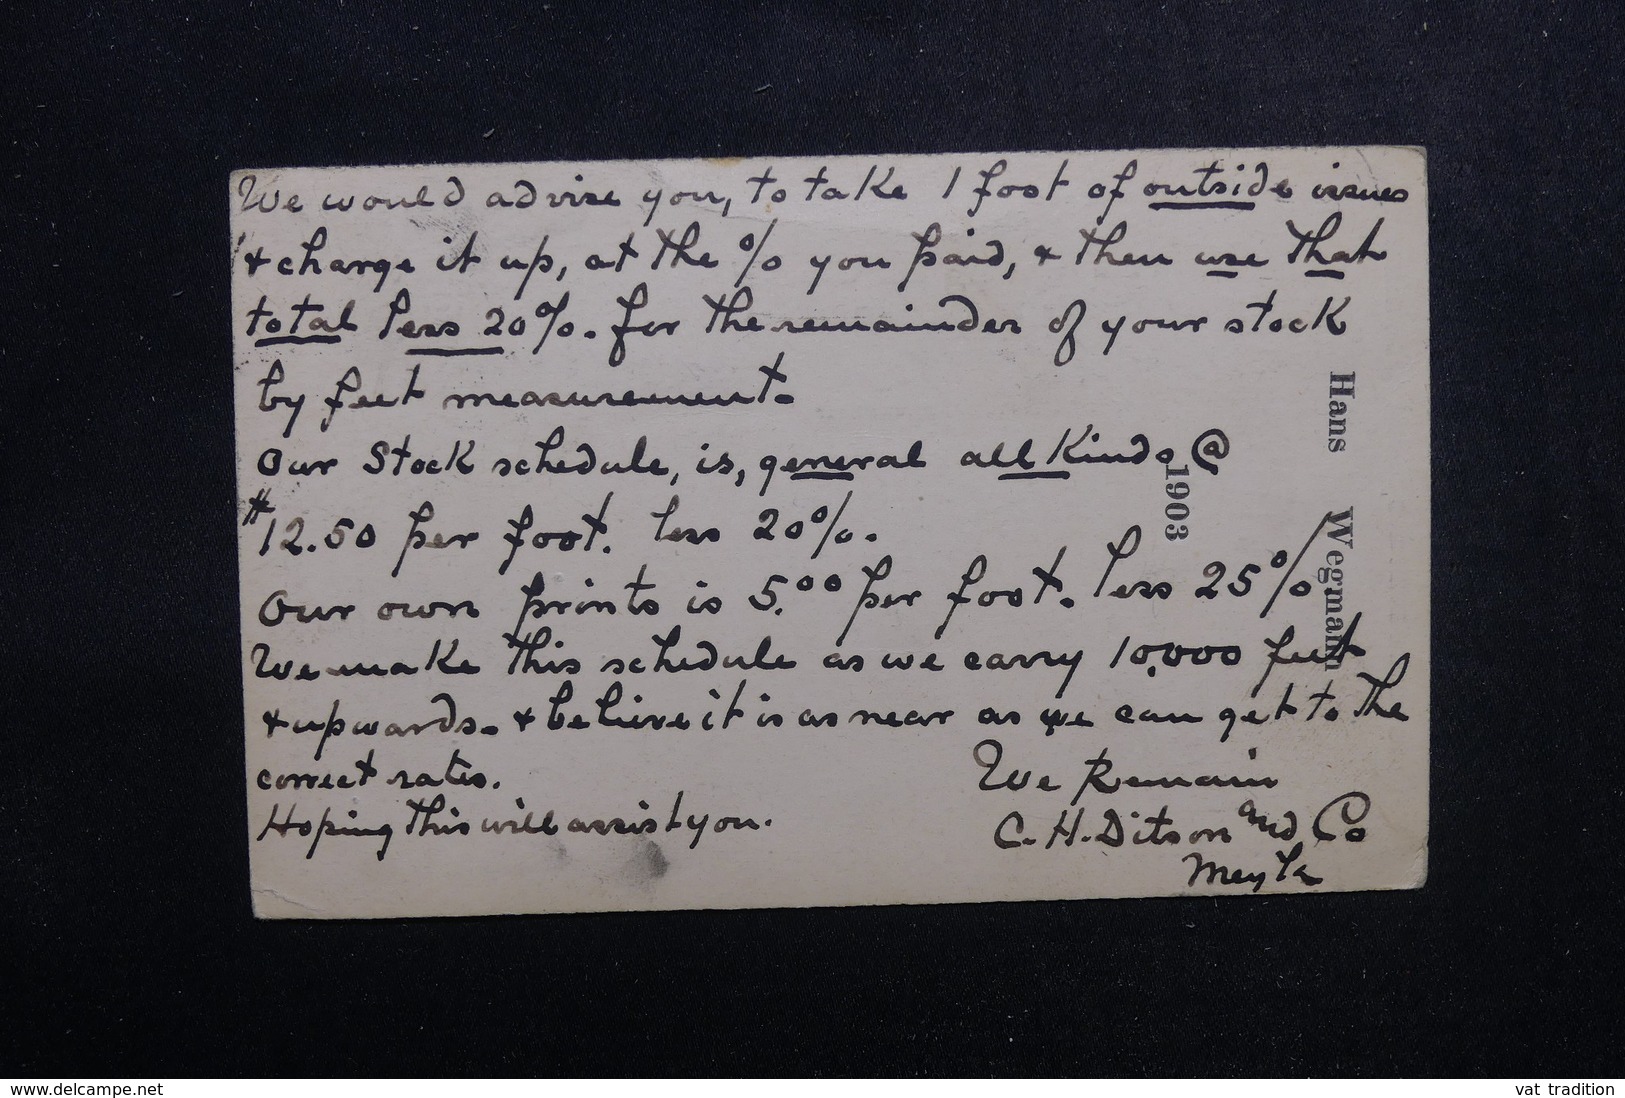 We would advise you, to take 1 foot of outside issues
& charge it up, at the % you paid, & then use that
total less 20%. for the remainder of your stock
by feet measurement.
Our Stock schedule, is, general all Kinds @
$12.50 per foot. less 20%.
Our own prints is 5.00 per foot. less 25%
We make this schedule as we carry 10,000 feet
& upwards. & believe it is as near as we can get to the
correct rates.
Hoping this will assist you.
We Remain
C. H. Ditson and Co
Hans Wegmann
1903
www.delcampe.net
vat tradition